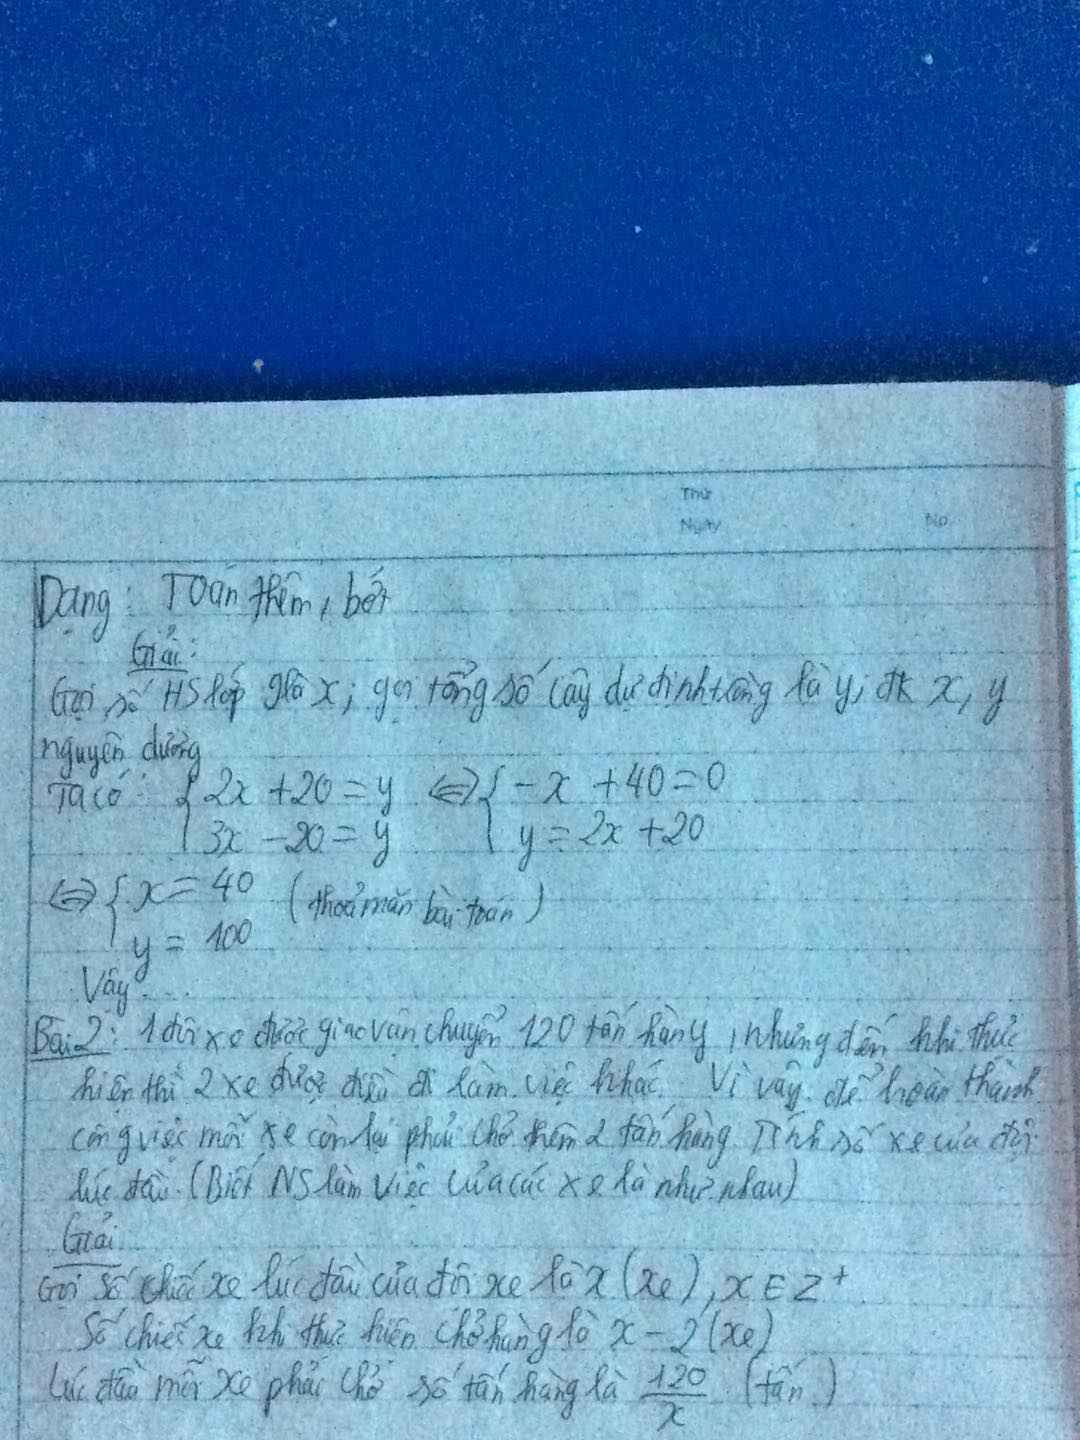 Thứ
Ngày No.
Dạng: Toán thêm, bớt
Giải:
Gọi số HS lớp 9 là x; gọi tổng số cây dự định trồng là y; đk x, y
nguyên dương
Ta có: { 2x + 20 = y <=> { -x + 40 = 0
3x - 20 = y y = 2x + 20
<=> { x = 40 (thoả mãn bài toán)
y = 100
Vậy ....
Bài 2: 1 đội xe được giao vận chuyển 120 tấn hàng, nhưng đến khi thực
hiện thì 2 xe được điều đi làm việc khác. Vì vậy để hoàn thành
công việc mỗi xe còn lại phải chở thêm 2 tấn hàng. Tính số xe của đội
lúc đầu. (Biết NS làm việc của các xe là như nhau)
Giải
Gọi số chiếc xe lúc đầu của đội xe là x (xe), x ∈ Z⁺
Số chiếc xe khi thực hiện chở hàng là x - 2 (xe)
Lúc đầu mỗi xe phải chở số tấn hàng là 120/x (tấn)